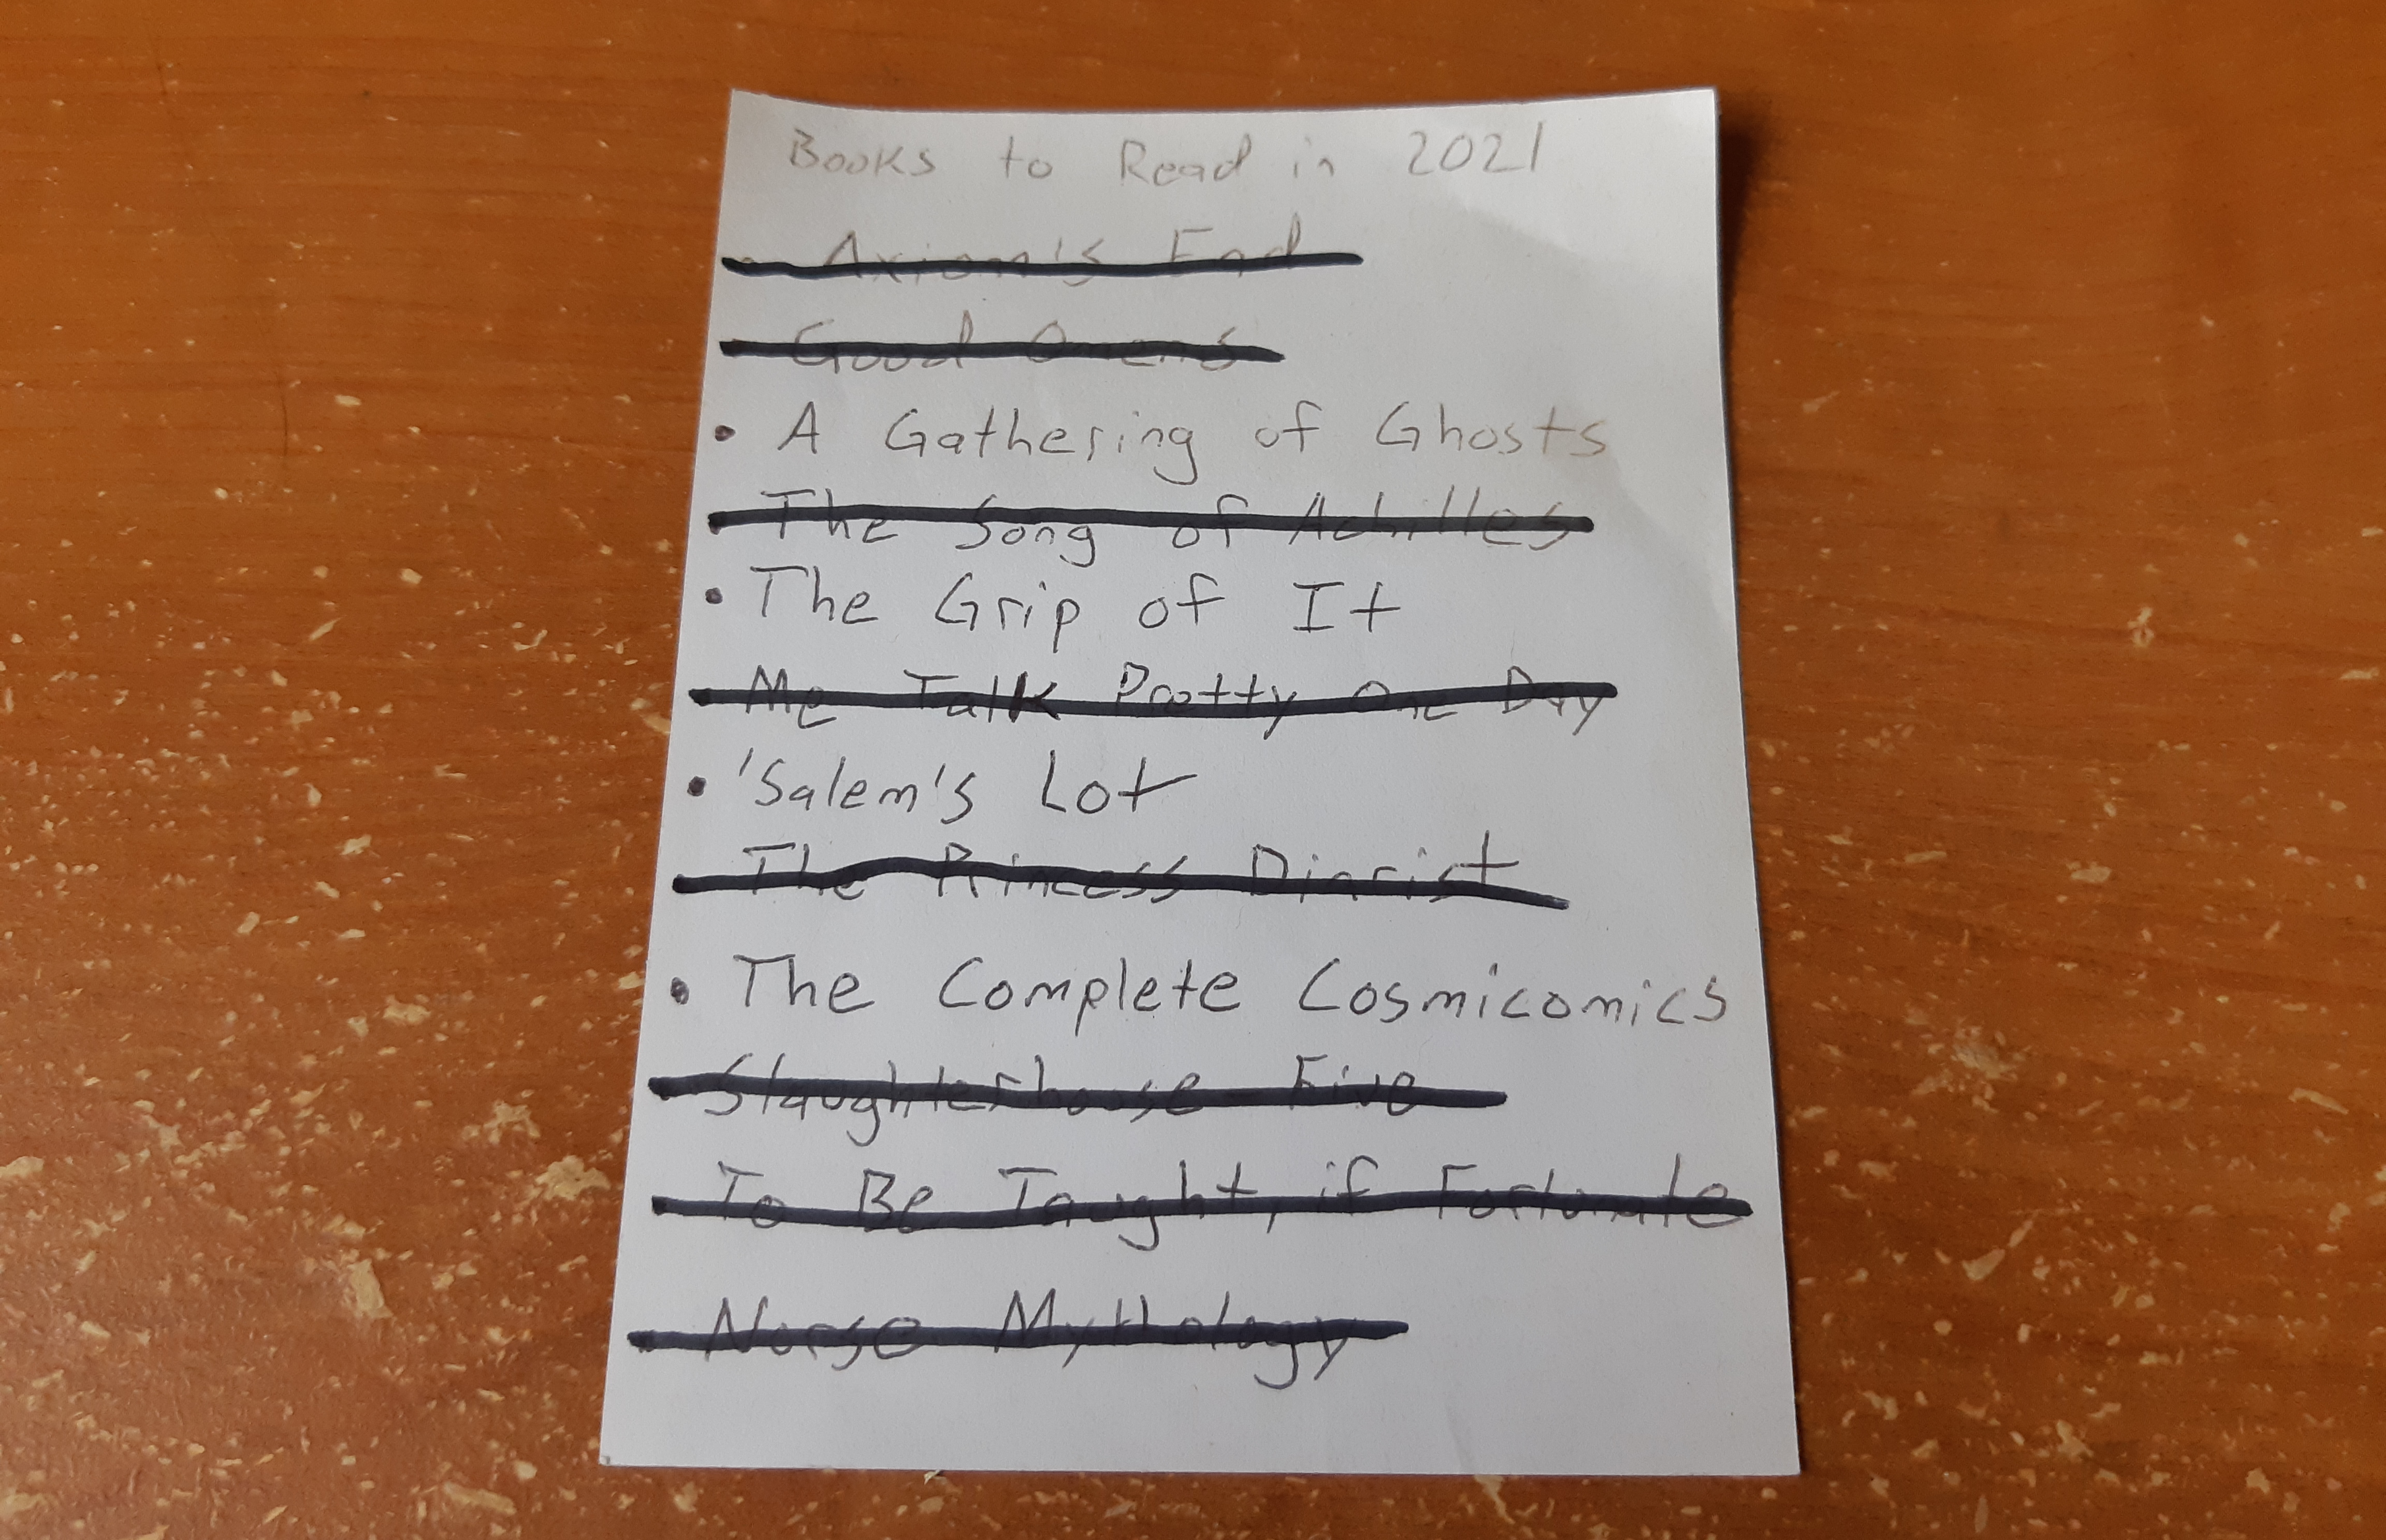 Books to Read in 2021
• Axiom's End
• Good Omens
• A Gathering of Ghosts
• The Song of Achilles
• The Grip of It
• Me Talk Pretty One Day
• 'Salem's Lot
• The Princess Diarist
• The Complete Cosmicomics
• Slaughterhouse Five
• To Be Taught, if Fortunate
• Norse Mythology